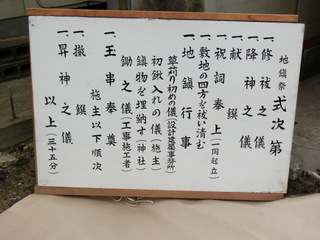 地鎮祭 式次第
一、修祓之儀
一、降神之儀
一、献饌
一、祝詞奉上(一同起立)
一、敷地の四方を祓い清む
一、地鎮行事
草苅り初めの儀(設計建築事務所)
初鍬入れの儀(施主)
鎮物を埋納す(神社)
鋤之儀(工事施工者)
一、玉串奉奠
施主以下順次
一、撤饌
一、昇神之儀
以上(三十五分)